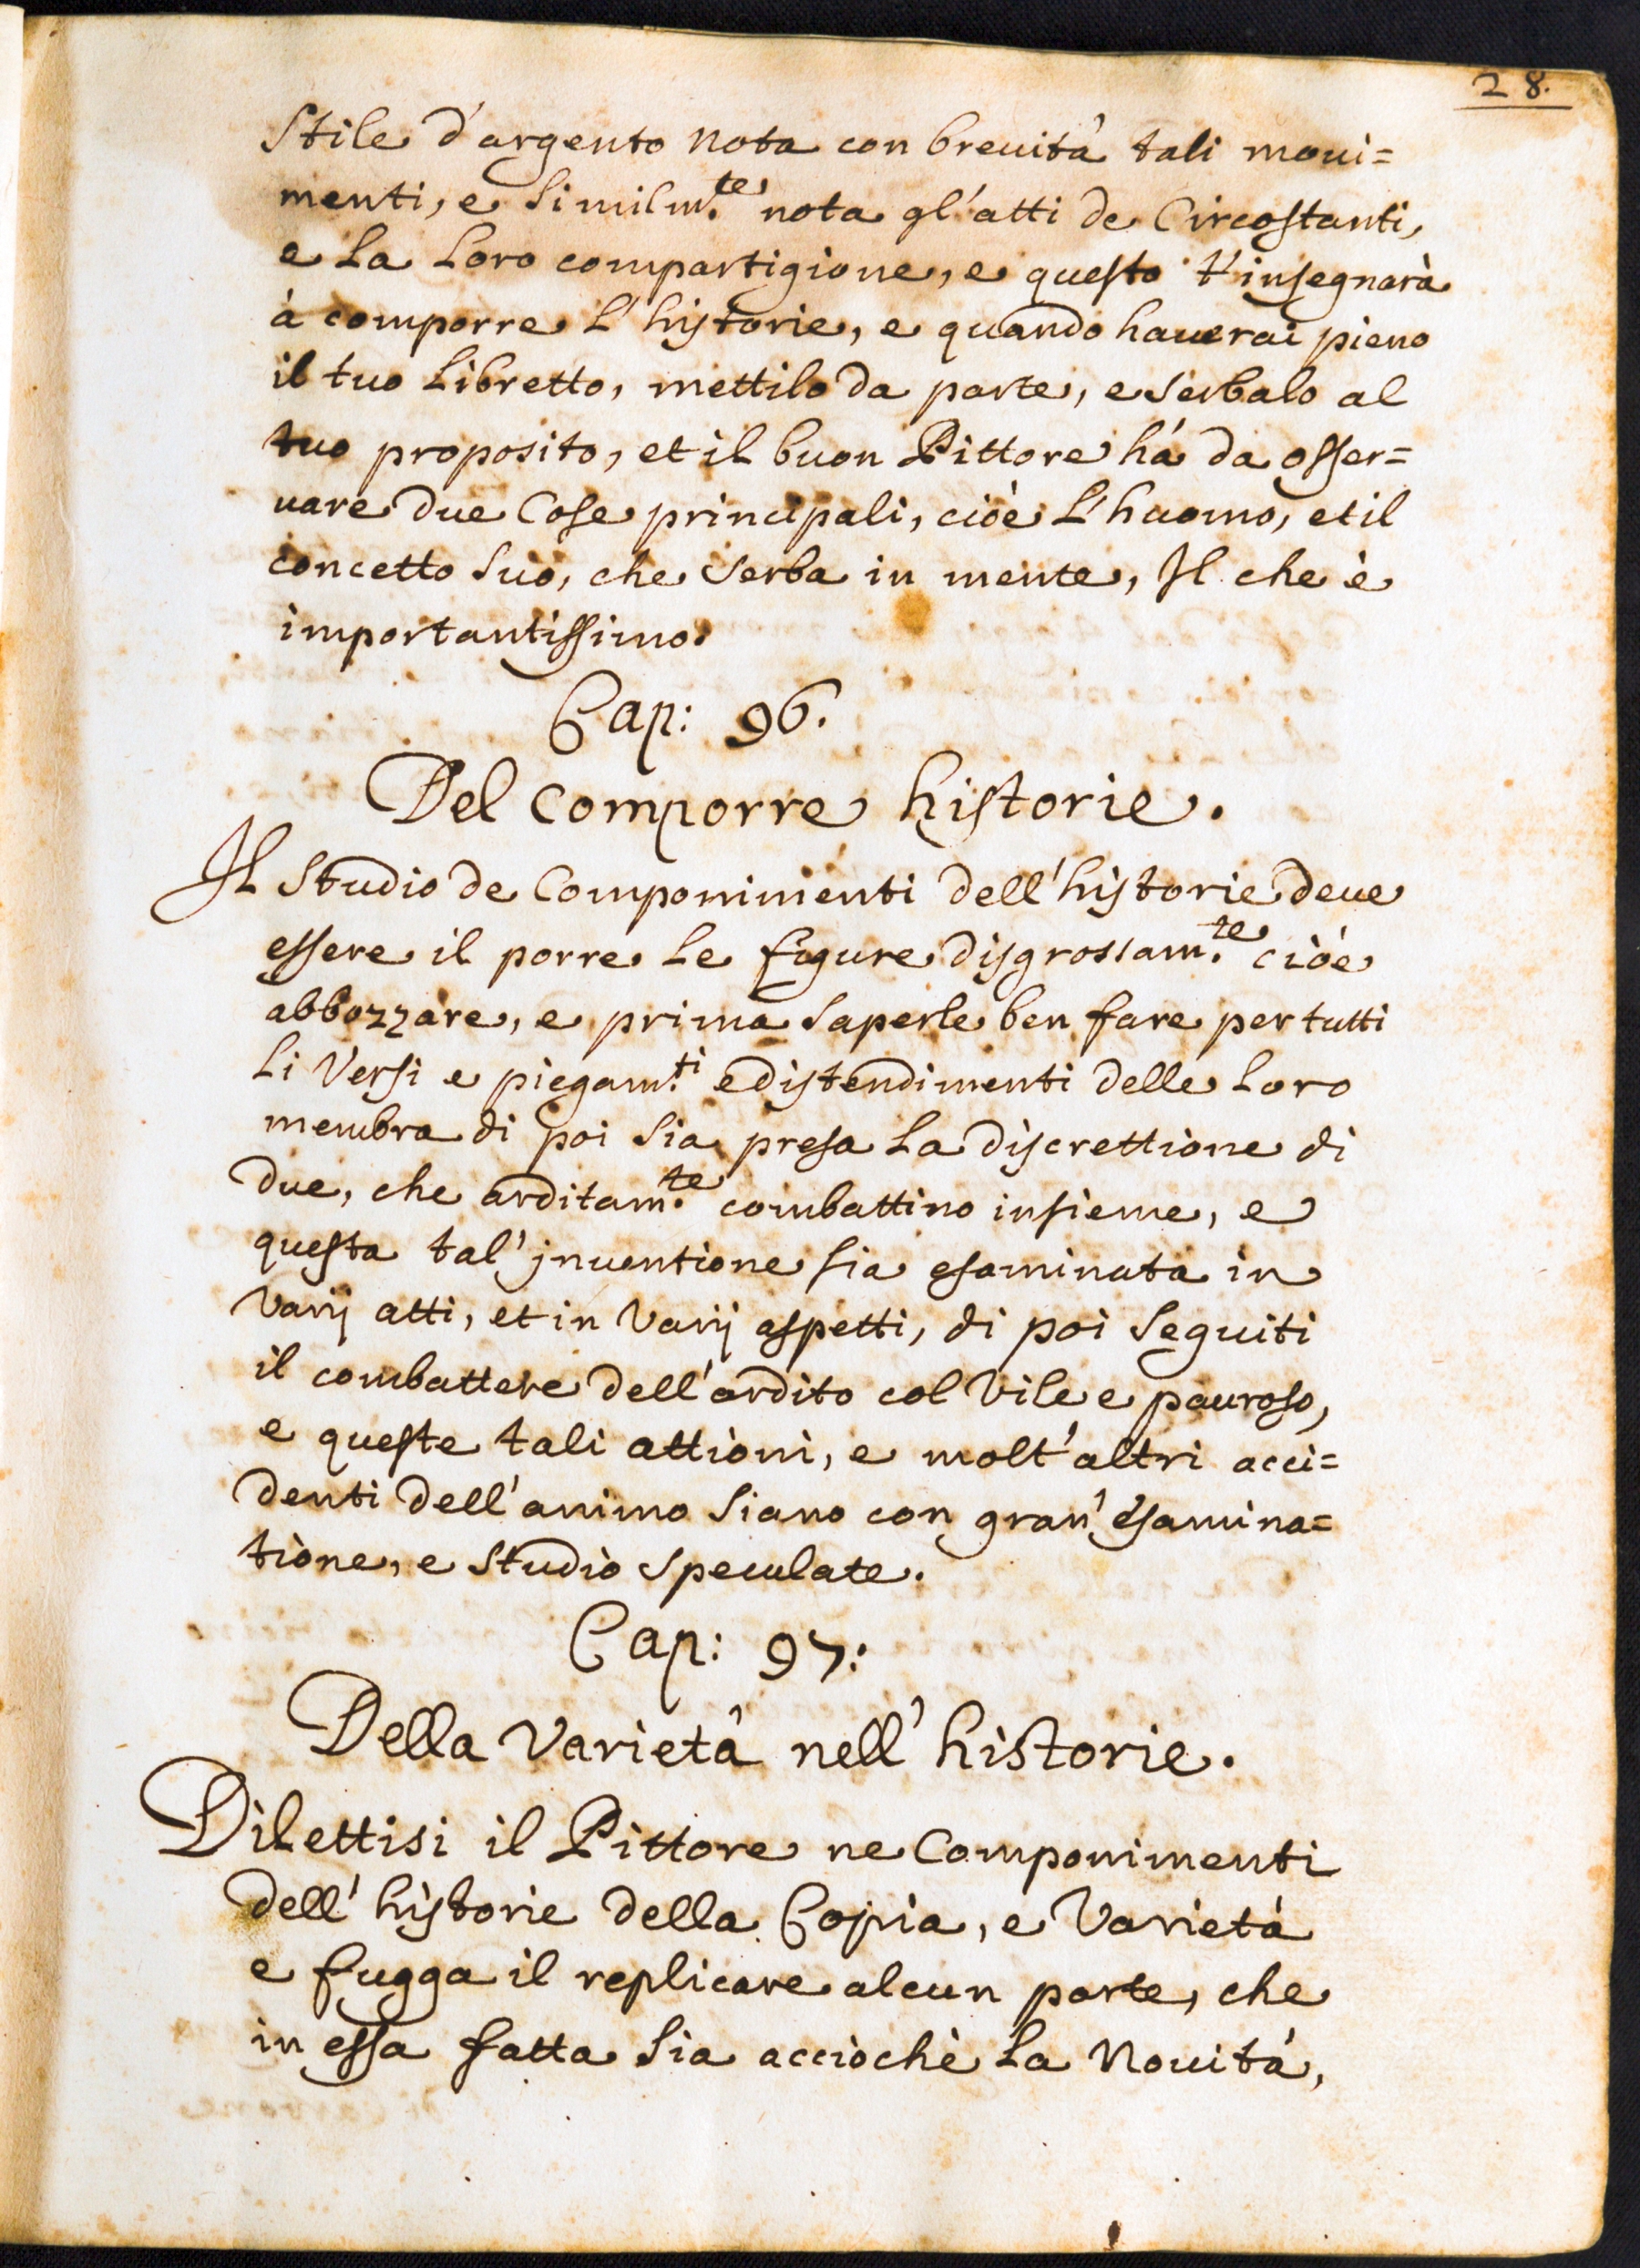 28.
Stile d'argento nota con breuità tali moui=
menti, e similm.te nota gl'atti de Circostanti,
e la loro compartigione, e questo t'insegnarà
à comporre l'historie, e quando hauerai pieno
il tuo libretto, mettilo da parte, e serbalo al
tuo proposito, et il buon Pittore hà da osser=
uare due Cose principali, cioè l'huomo, et il
concetto suo, che serba in mente, Il che è
importantissimo.
Cap: 96.
Del comporre historie.
Il studio de Componimenti dell'historie deue
essere il porre le figure disgrossam.te cioè
abbozzare, e prima saperle ben fare per tutti
li versi e piegam.ti e distendimenti delle loro
membra di poi sia presa la discrettione di
due, che arditam.te combattino insieme, e
questa tal' jnuentione sia esaminata in
varij atti, et in varij aspetti, di poi seguiti
il combattere dell'ardito col vile e pauroso,
e queste tali attioni, e molt'altri acci=
denti dell'animo siano con gran' esamina=
tione, e studio speculate.
Cap: 97:
Della varietà nell' historie.
Dilettisi il Pittore ne Componimenti
dell' historie della Copia, e Varietà
e fugga il replicare alcun parte, che
in essa fatta sia acciochè la Nouità,